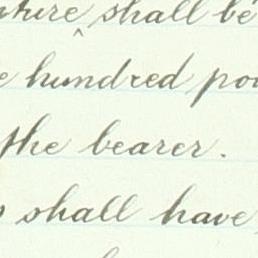 shall be
hundred
the bearer.
shall have